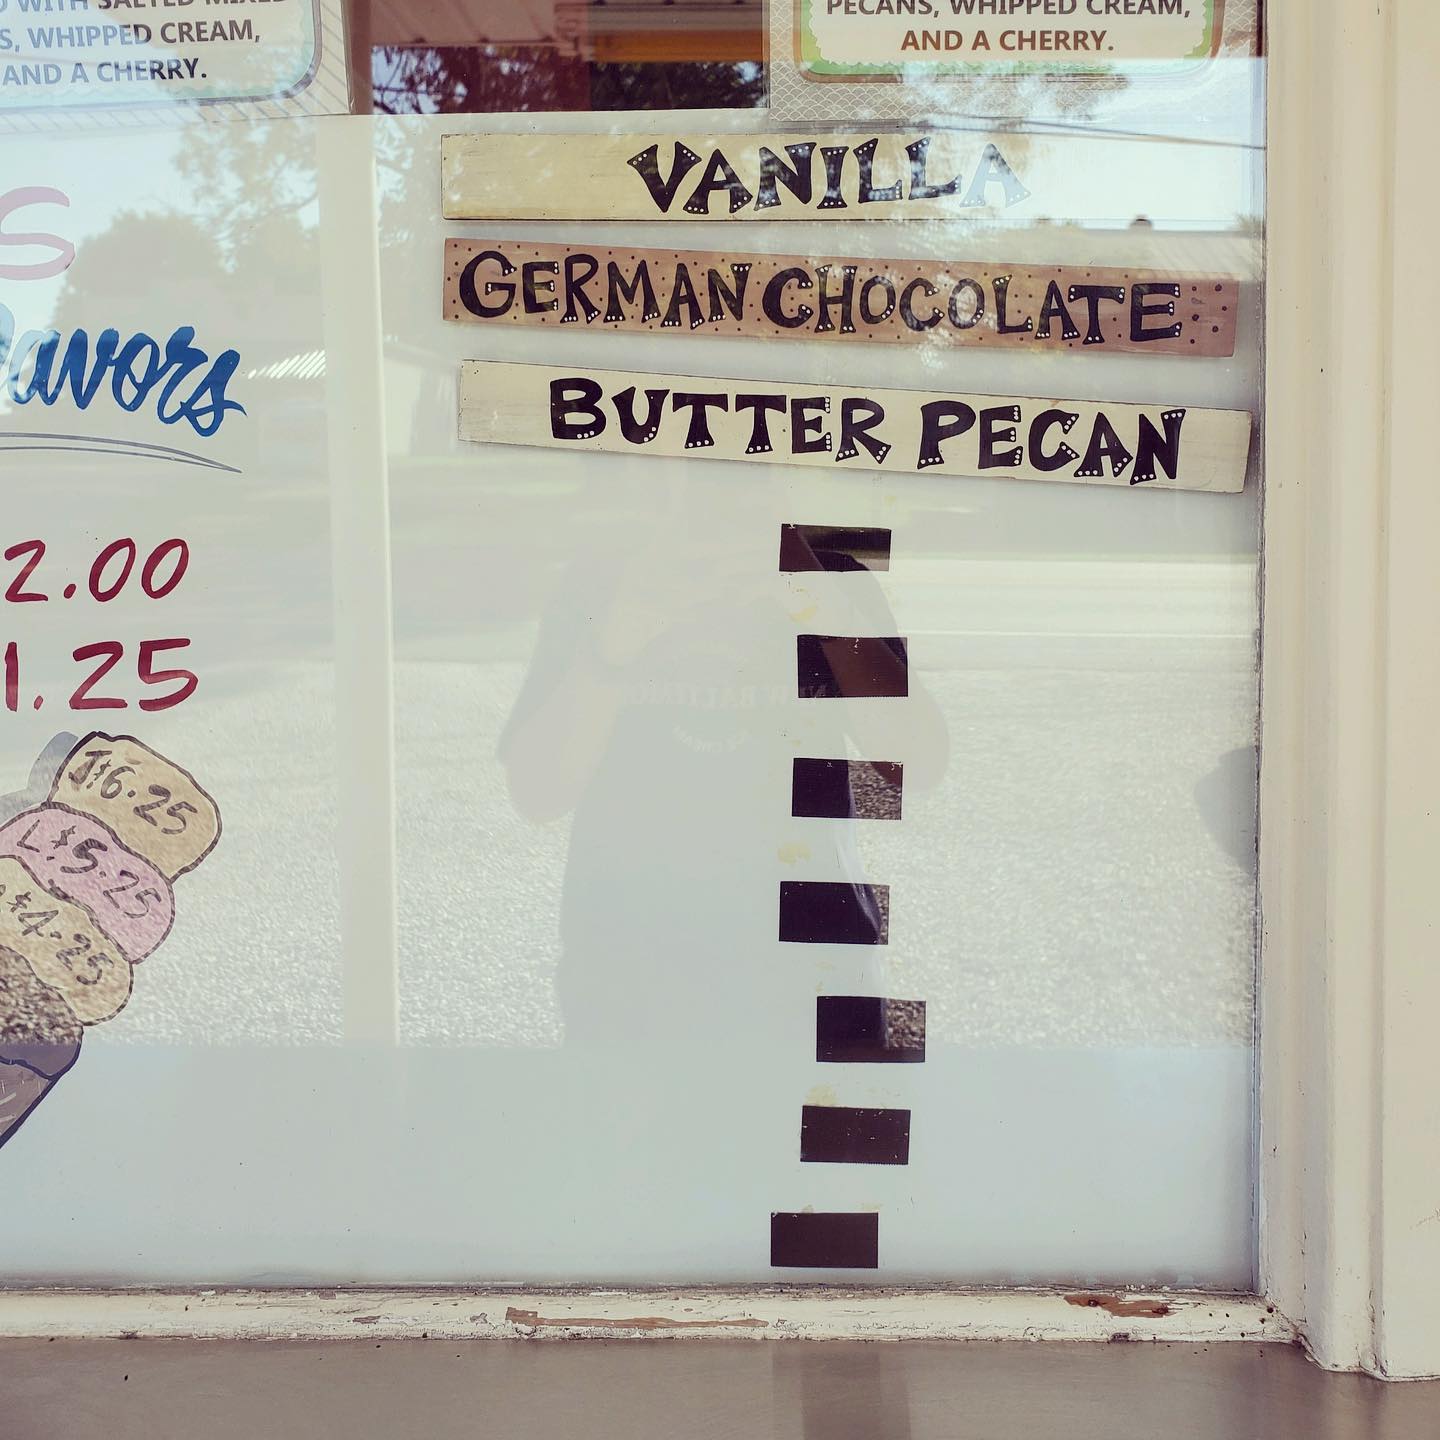 WITH SALTED MIXED
S, WHIPPED CREAM,
AND A CHERRY.
PECANS, WHIPPED CREAM,
AND A CHERRY.
S
lavors
2.00
1.25
J $6.25
L $5.25
$4.25
VANILLA
GERMAN CHOCOLATE
BUTTER PECAN